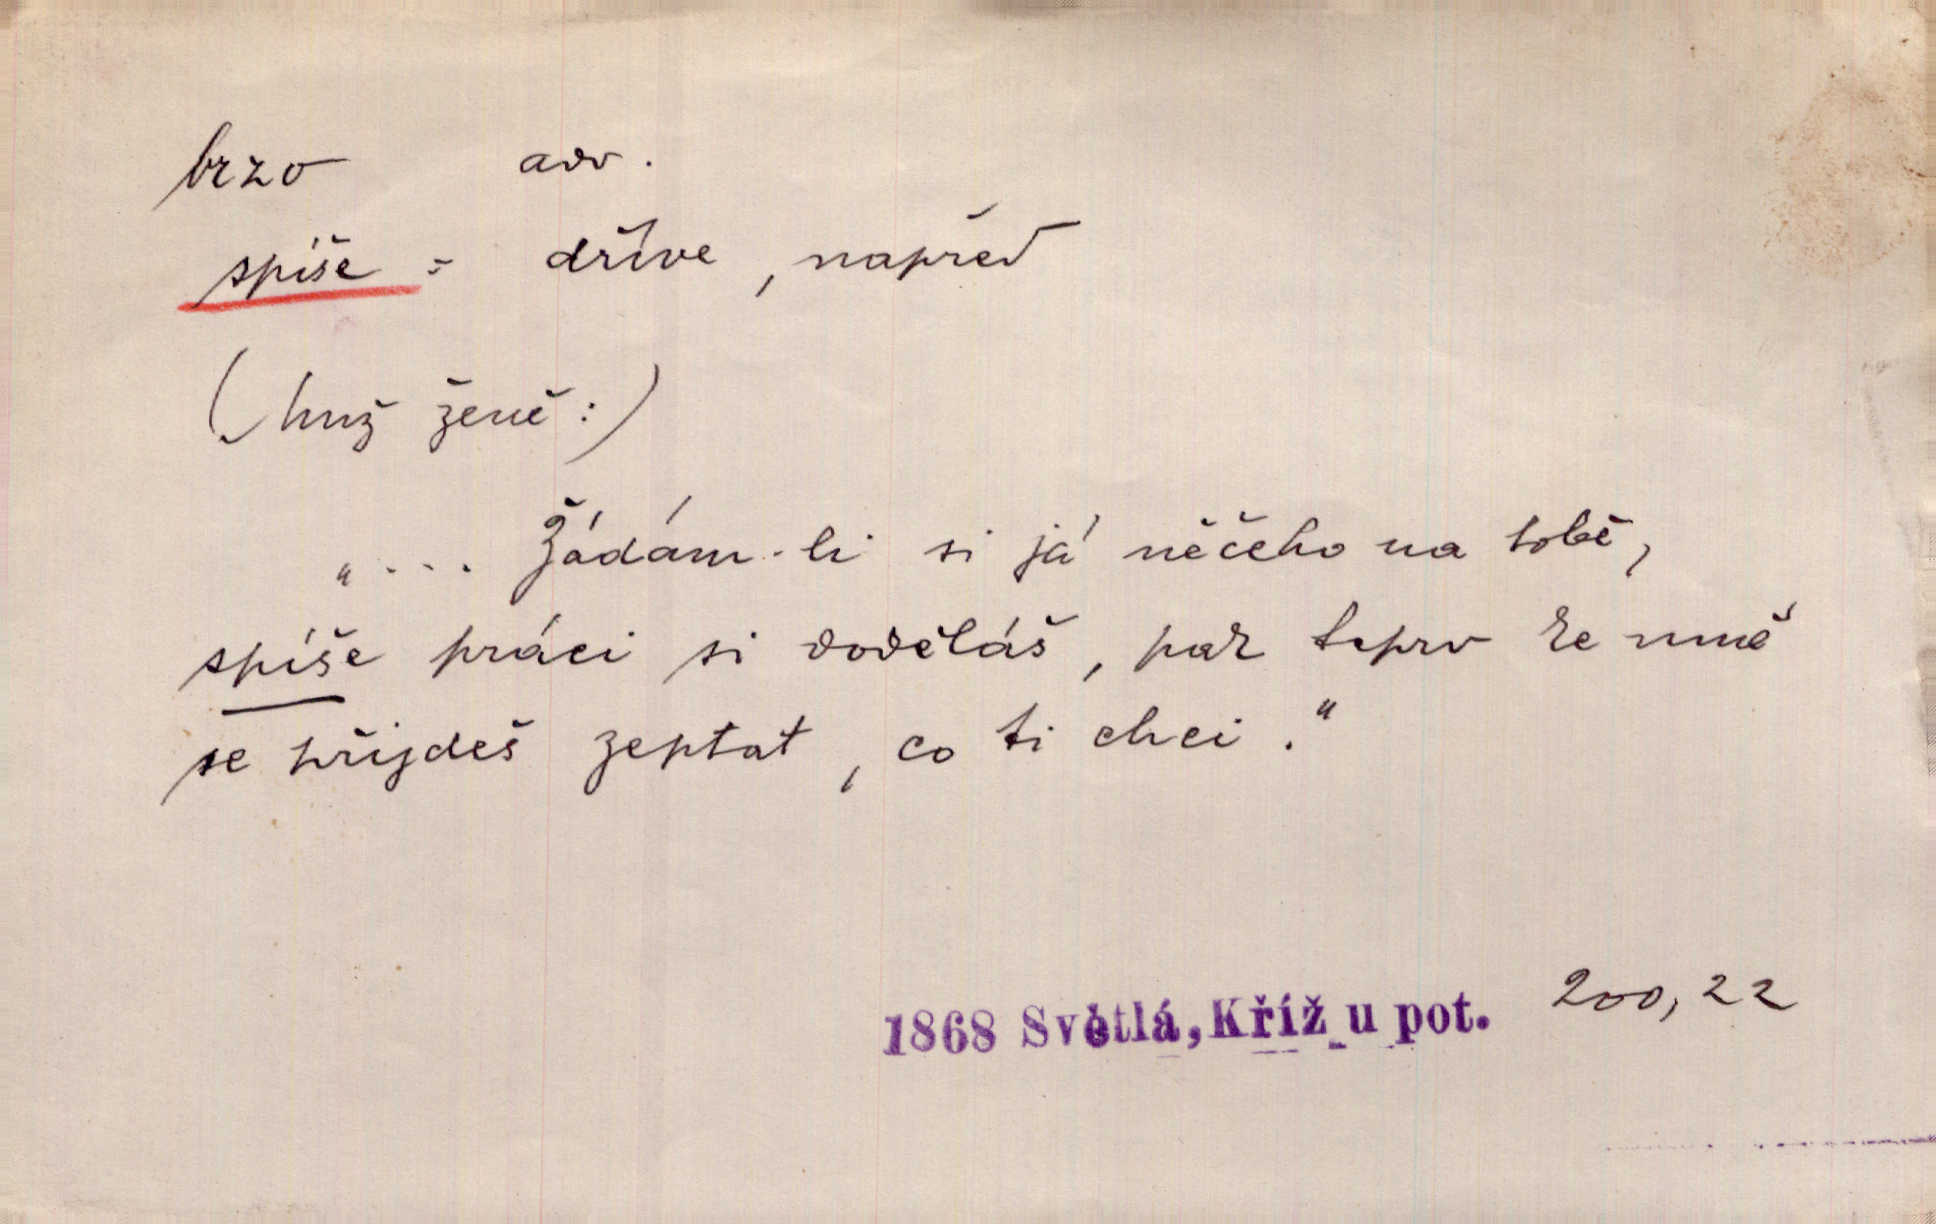 brzo adv.
spíše = dříve, napřed
(Muž ženě:)
„... Žádám-li si já něčeho na tobě,
spíše práci si doděláš, pak teprv ke mně
se přijdeš zeptat, co ti chci.“
1868 Světlá, Kříž u pot. 200, 22